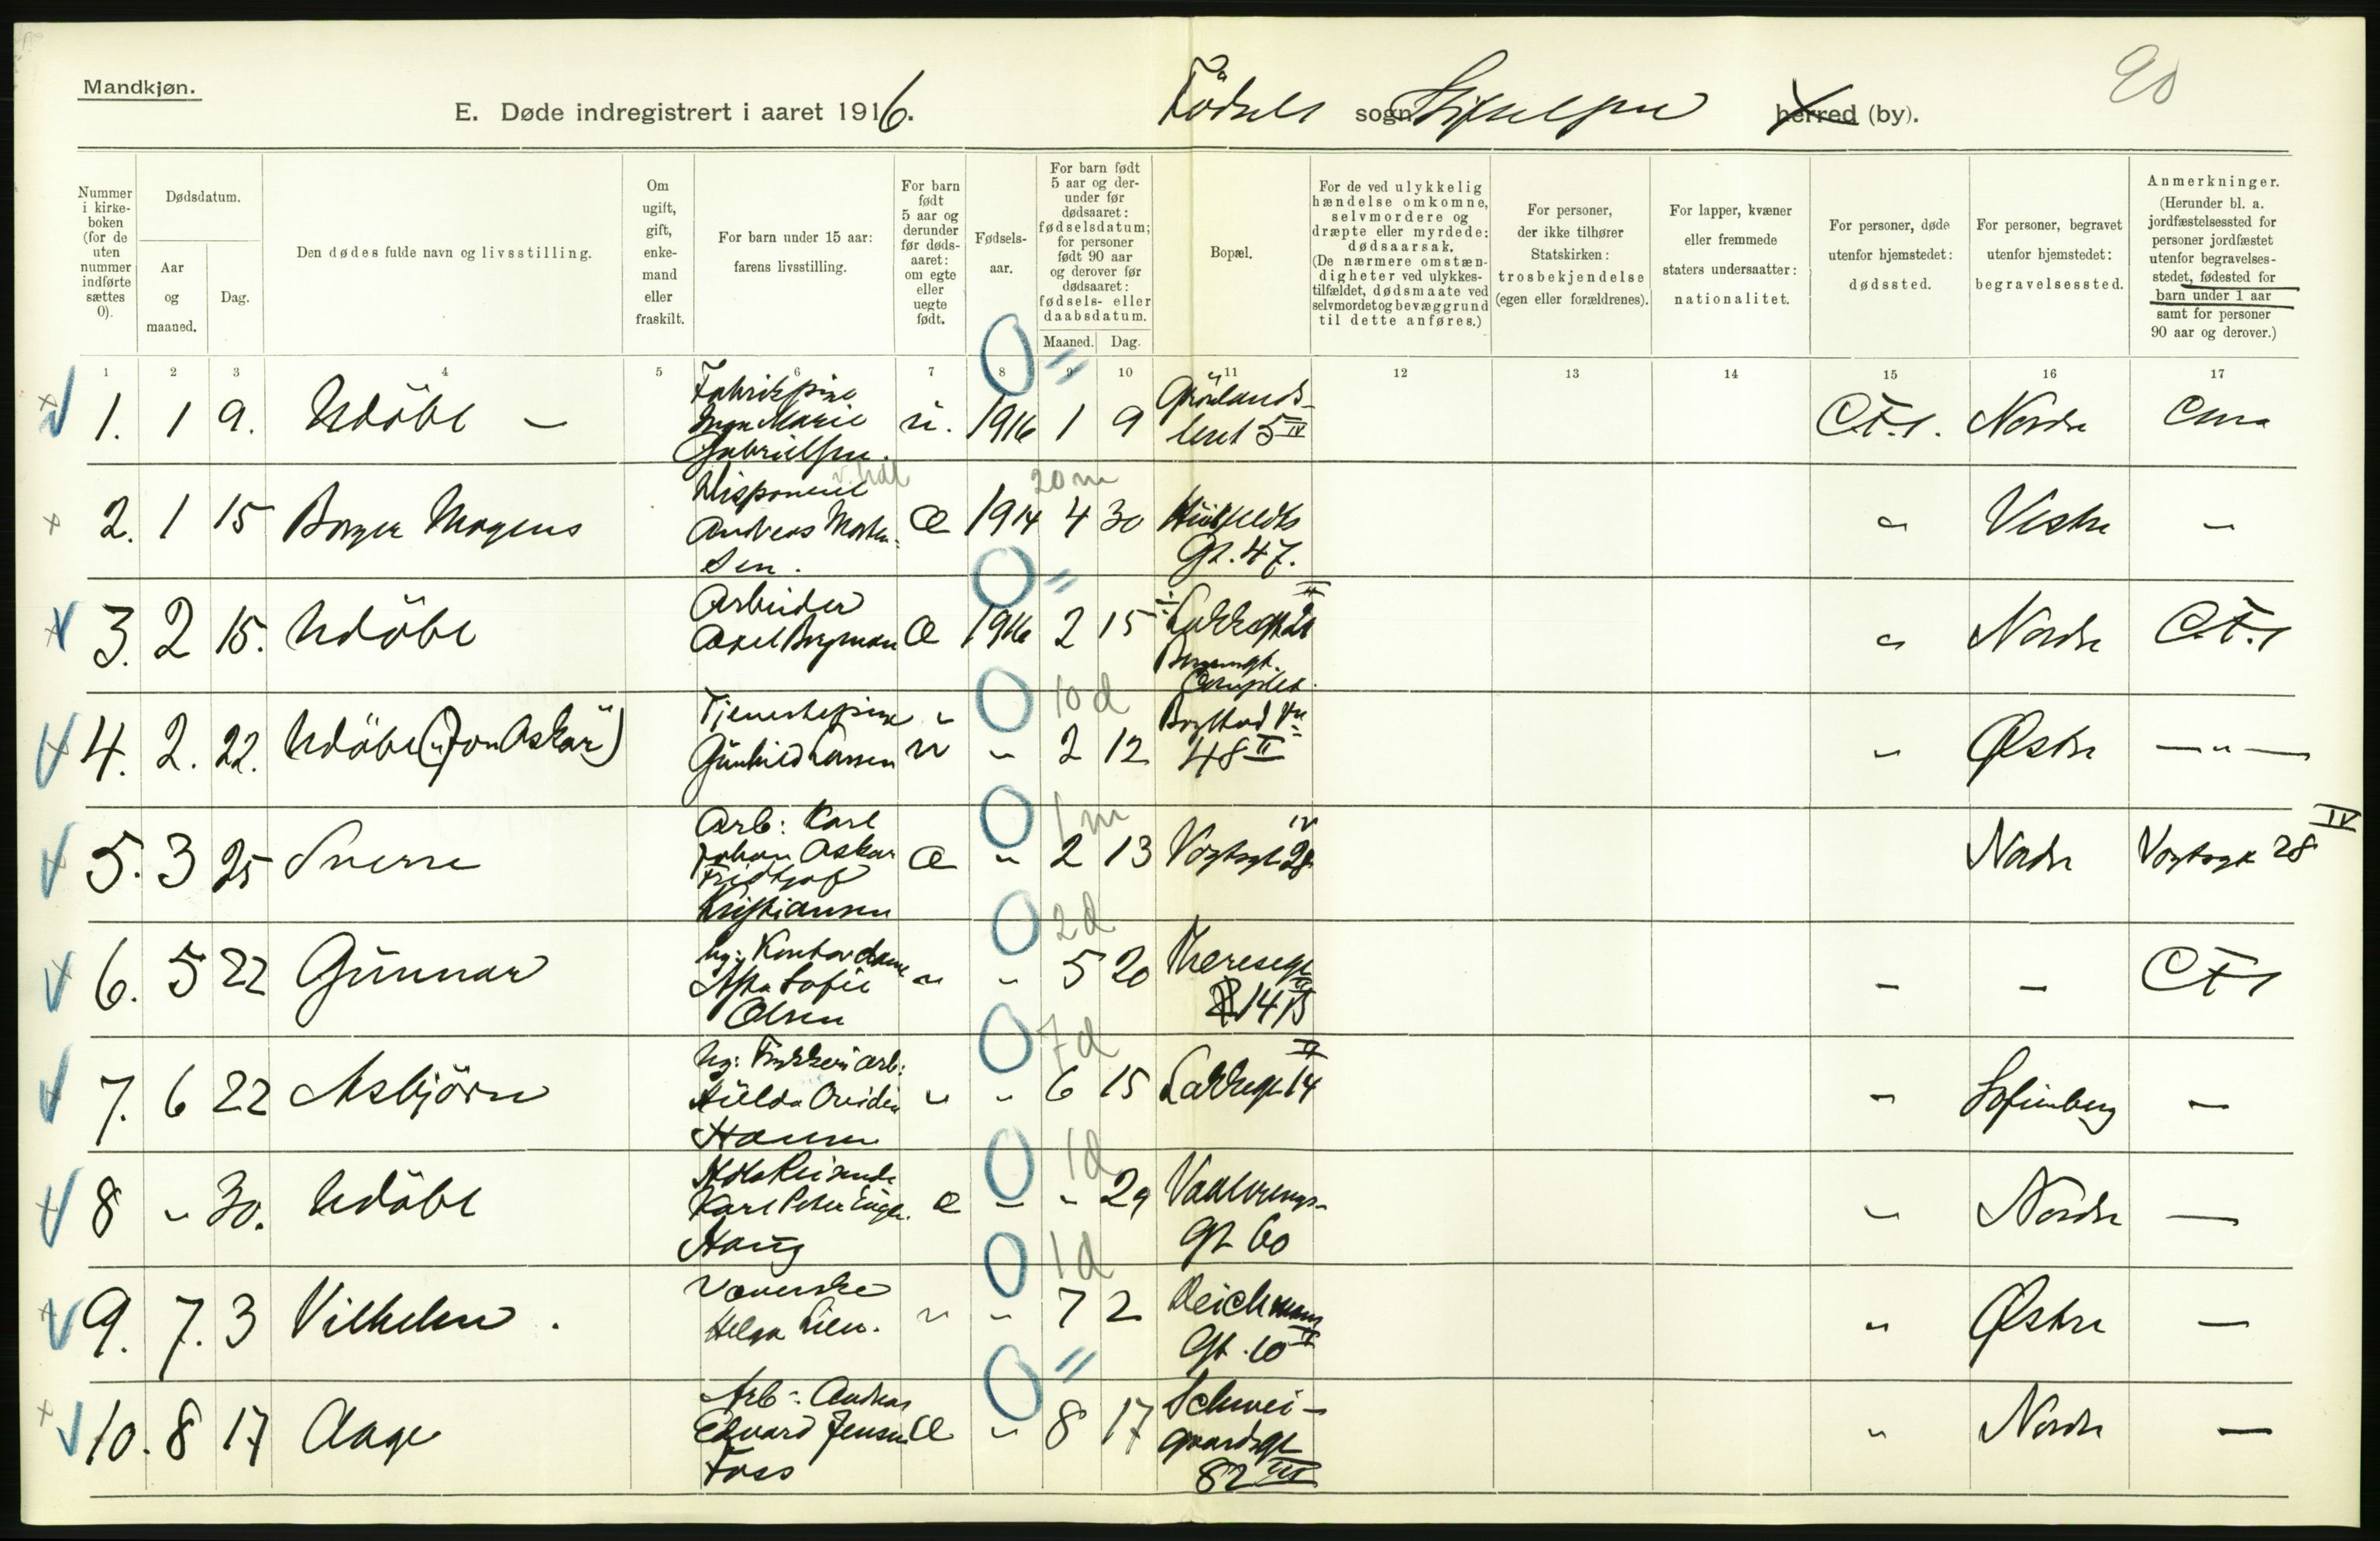 Mandkjøn.
E. Døde indregistrert i aaret 1916.
sogn
herred (by).
90
Nummer i kirkeboken (for de uten nummer indførte sættes 0).
Dødsdatum.
Aar og maaned.
Dag.
Den dødes fulde navn og livsstilling.
Om ugift, gift, enkemand eller fraskilt.
For barn under 15 aar: farens livsstilling.
For barn født 5 aar og derunder før dødsaaret: om egte eller uegte født.
Fødselsaar.
For barn født 5 aar og derunder før dødsaaret: fødselsdatum; for personer født 90 aar og derover før dødsaaret: fødsels- eller daabsdatum.
Maaned.
Dag.
Bopæl.
For de ved ulykkelig hændelse omkomne, selvmordere og dræpte eller myrdede: dødsaarsak. (De nærmere omstændigheter ved ulykkestilfældet, dødsmaate ved selvmordet og bevæggrund til dette anføres.)
For personer, der ikke tilhører Statskirken: trosbekjendelse (egen eller forældrenes).
For lapper, kvæner eller fremmede staters undersaatter: nationalitet.
For personer, døde utenfor hjemstedet: dødssted.
For personer, begravet utenfor hjemstedet: begravelsessted.
Anmerkninger. (Herunder bl. a. jordfæstelsessted for personer jordfæstet utenfor begravelsesstedet, fødested for barn under 1 aar samt for personer 90 aar og derover.)
1 2 3 4 5 6 7 8 9 10 11 12 13 14 15 16 17
1. 1 9. Udöbt — Fabrikpike Inga Marie Gabrielsen. u. 1916 1 9 Grönlands- leret 5 IV Nordre
2. 1 15 Borger Mogens Disponent Andreas Morten- sen. 20 m Æ 1914 4 30 Huitfeldts Gt. 47. " Vestre —
3. 2 15. Udöbt Arbeider Axel Bergman Æ 1916 2 15 " Nordre
4. 2. 22. Udöbt ("Jon Askar") Tjenestepike Gunhild Larsen u 10 d " 2 12 48 II " Østre — " —
5. 3 25 Sverre Arb: Karl Johan Oskar Fridtjof Kristiansen Æ 1 m " 2 13 Vogtsgt 28 IV Nordre Vogtsgt 28 IV
6. 5 22 Gunnar Ug: Kontordame Sofie Olsen " 2 d " 5 20 Theresegt 14 B — —
7. 6 22 Asbjörn Ug: Hulda Ovidia Hansen " 7 d " 6 15 Lakkegt 14 — Sofienberg —
8 " 30. Udöbt Karl Peter Haug e 1 d — " 29 Vaalerengs- Gt 60 " Nordre —
9. 7. 3 Vilhelm. Væverske Helga Lien. " 1 d " 7 2 Deichmans Gt. 10 " Østre —
10. 8 17 Aage Arb: Andreas Edvard Jensen Foss Æ " 8 17 Schwei- gaardsgt 82 III " Nordre —